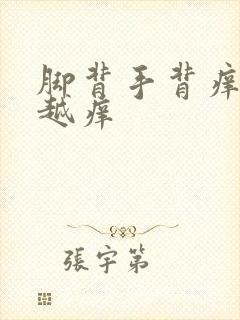 脚背手背痒
越痒
張宇第